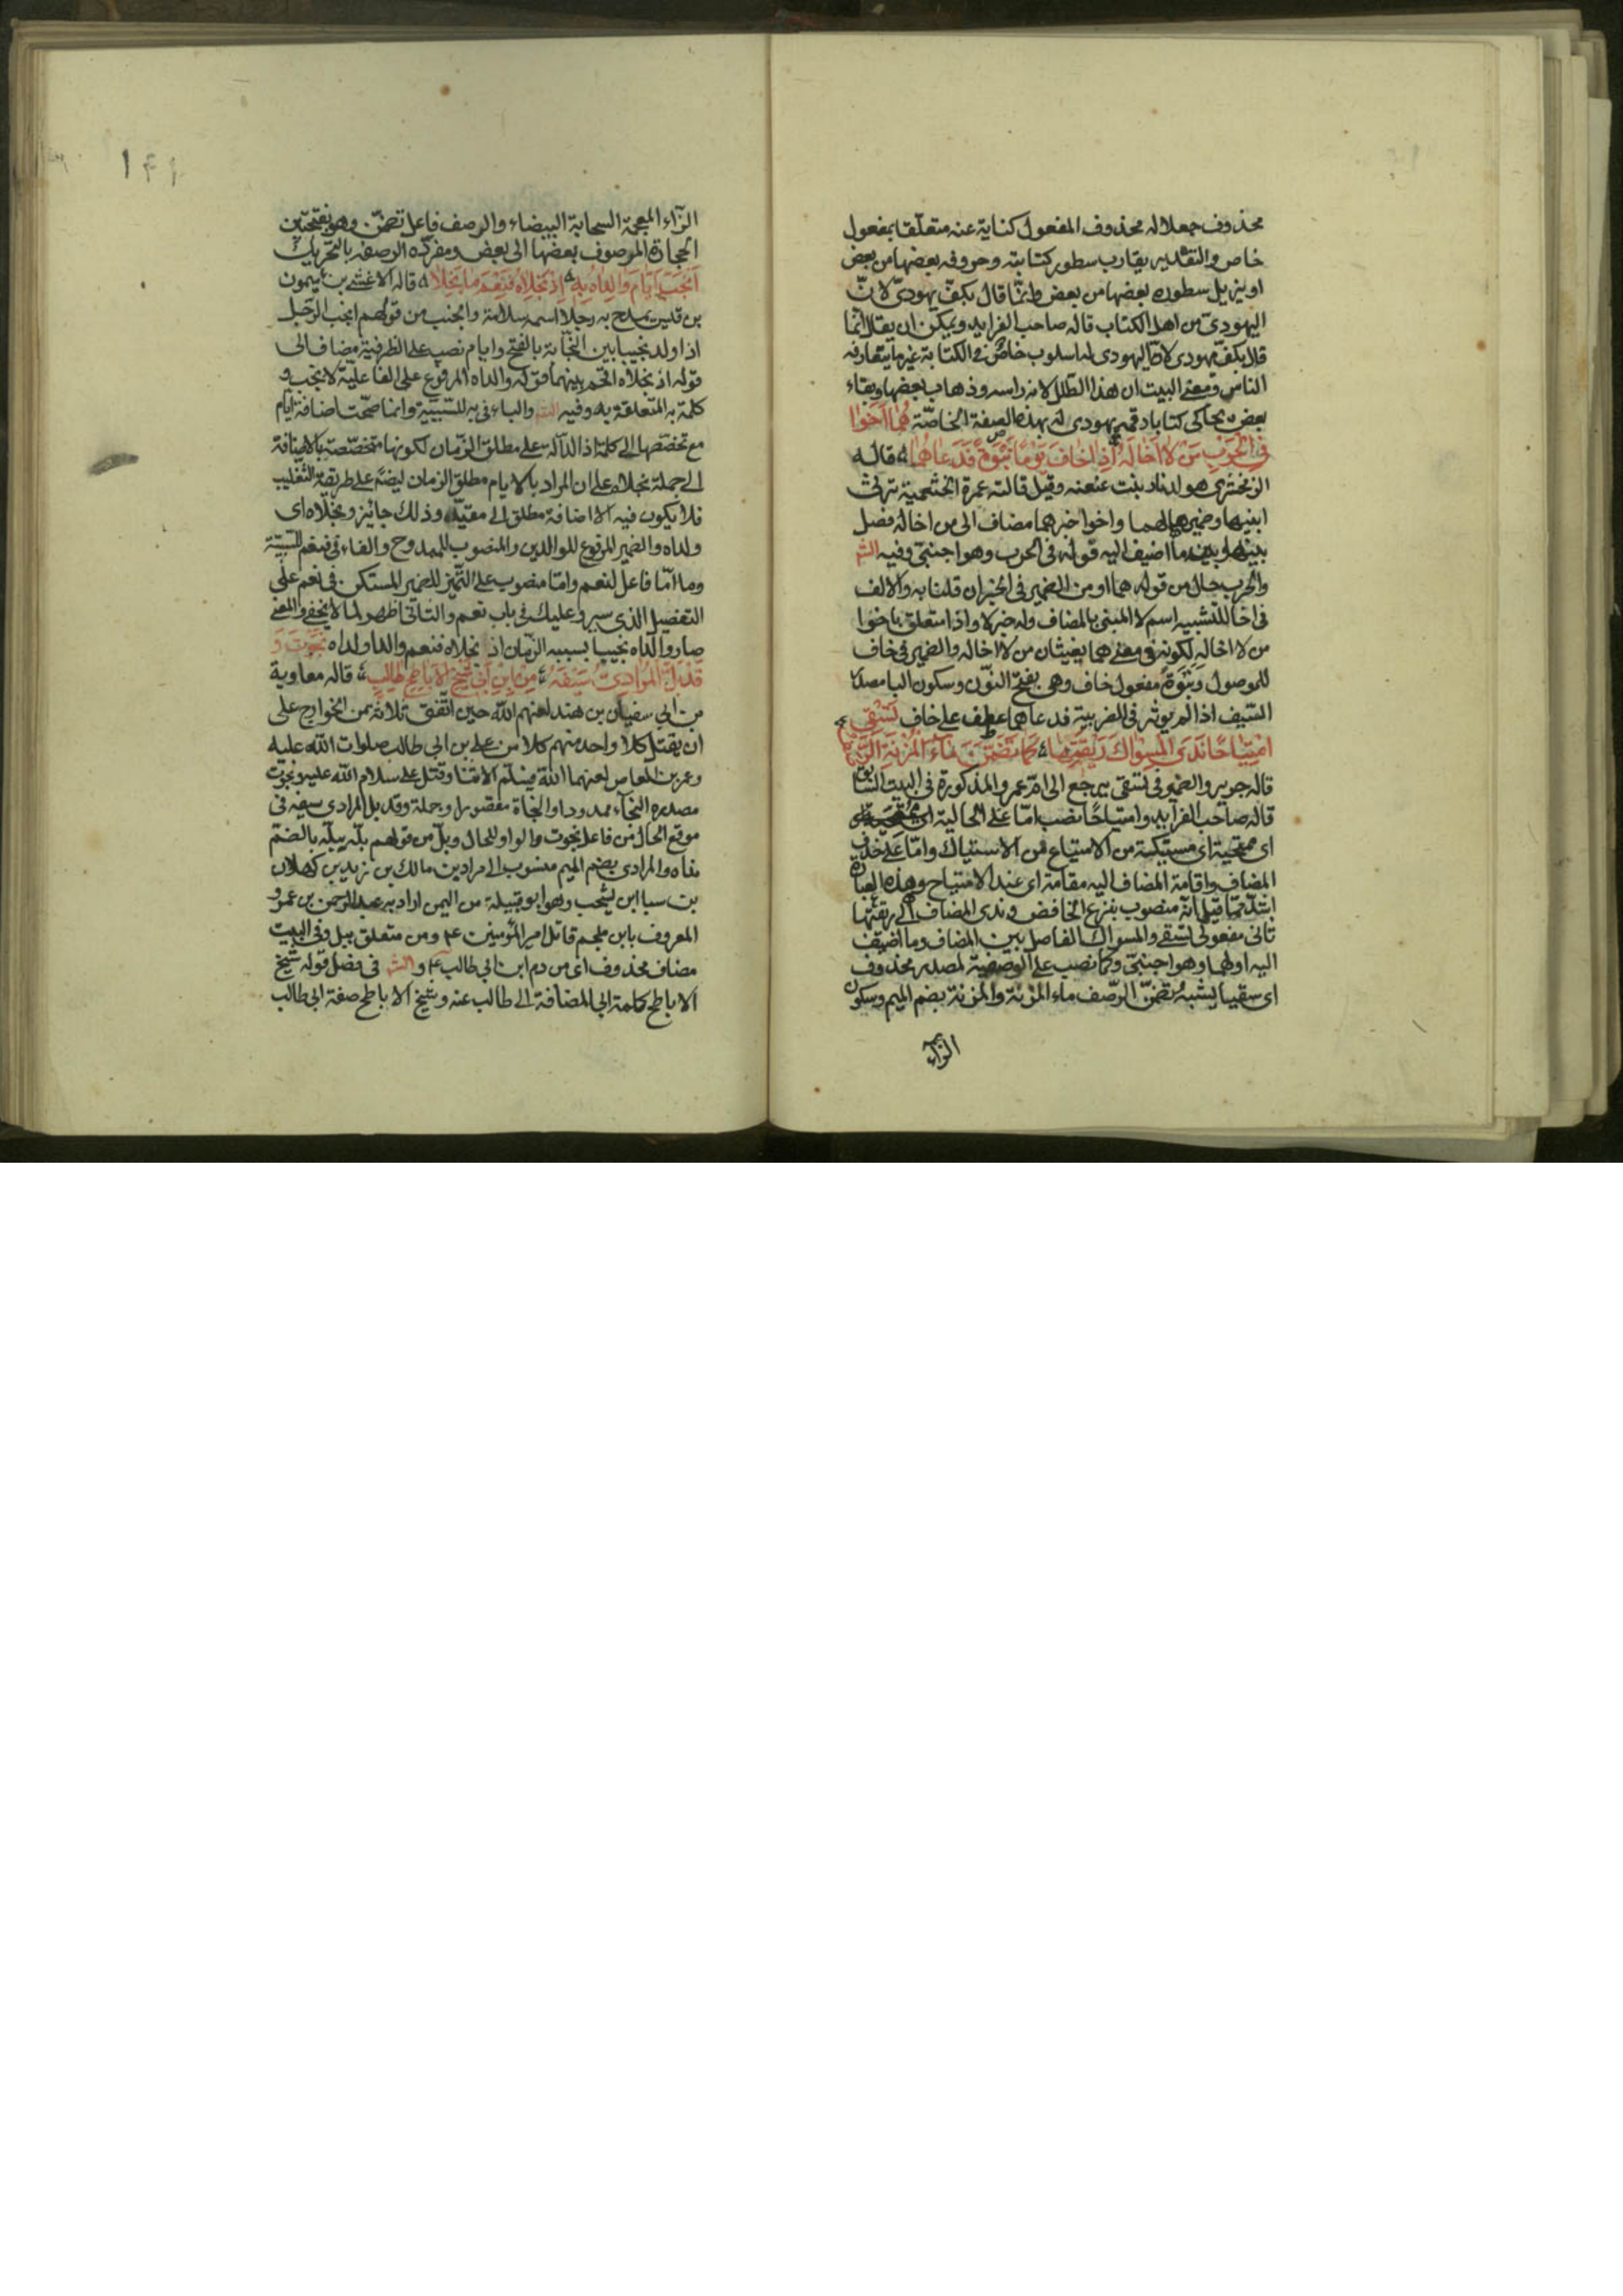 محذوف جعلا له محذوف المفعول كناية عنه متعلقا بمفعول
خاص والتقدير يقارب سطور كتابته وحروفه بعضها من بعض
او يزيل سطوره بعضها من بعض وانما قال بكف يهودى لان
اليهودى من اهل الكتاب قاله صاحب الفرايد ويمكن ان يقال انما
قال بكف يهودى لان اليهودى له اسلوب خاص فى الكتابة غير ما يتعارفه
الناس ومعنى البيت ان هذا الطلل لاندراسه وذهاب بعضها وبقاء
بعض يحاكى كتابا رقمه يهودى له بهذه الصفة الخاصة هُمَا اَخَوا
فِى الحَرْبِ مَنْ لا اَخَا لَهُ اِذا خَافَ يَوْمًا نَبْوَةً فَدَعَاهُمَا قاله
الزمخشرى هو لدرنا بنت عنعنه وقيل قالته عمرة الخثعمية ترثى
ابنيها وضمير هما لهما واخوا خبر هما مضاف الى من لا اخا له فصل
بينها وبين ما اضيف اليه قوله فى الحرب وهو اجنبى وفيه الش
والحرب حال من قوله هما او من الضمير فى الخبر ان قلنا به والالف
فى اخا للتشبيه اسم لا المبنى بالمضاف وله خبر لا واذا متعلق باخوا
من لا اخا له لكونه فى معنى هما يغيثان من لا اخا له والضمير فى خاف
للموصول ونبوة مفعول خاف وهى بفتح النون وسكون البا مصدر
السيف اذا لم يوثر فى الضريبة فدعاهما عطف على خاف تَسْقِى
امْتِيَاحًا نَدَى المِسْوَاكَ رِيقَتِهَا كَمَا تَضَمَّنَ مَاءَ المُزْنَةِ الرَّصَفُ
قاله جرير والضمير فى تسقى يرجع الى ام عمرو المذكورة فى البيت السابق
قاله صاحب الفرايد وامتياحا نصب اما على الحالية
اى ممتحية اى مستيكة من الامتياح من الاستياك واما على حذف
المضاف واقامة المضاف اليه مقامه اى عند الامتياح وهذه العبارة
اسد مما قيل انه منصوب بنزع الخافض وندى المضاف الى ريقتها
ثانى مفعولى تسقى والمسواك الفاصل بين المضاف وما اضيف
اليه اولهما وهو اجنبى وكما نصب على الوصفية لمصدر محذوف
اى سقيا يشبه تضمن الرصف ماء المزنة والمزنة بضم الميم وسكون
الزاء
١٤١
الزاء المعجمة السحابة البيضاء والرصف فاعل تضمن وهو بفتحتين
الحجارة المرصوف بعضها الى بعض ومفرده الرصفة بالتحريك
اَنْجَبَ اَيَّامَ وَالِدَاهُ بِهِ اِذْ نَجَلَاهُ فَنِعْمَ مَا نَجَلَا قاله الاعشى بن ميمون
بن قيس يمدح به رجلا اسمه سلامة وانجب من قولهم انجب الرجل
اذا ولد نجيبا بين النجابة بالفتح وايام نصب على الظرفية مضاف الى
قوله اذ نجلاه اقحم بينهما قوله والداه المرفوع على الفاعلية لانجب و
كلمة به المتعلقة به وفيه الش والباء فى به للسببية وانما صحت اضافة ايام
مع تخصصها الى كلمة اذ الدالة على مطلق الزمان لكونها متخصصة بالاضافة
الى جملة نجلاه على ان المراد بالايام مطلق الزمان ايضا على طريقة التغليب
فلا يكون فيه الا اضافة مطلق الى مقيد وذلك جايز ونجلاه اى
ولداه والضمير المرفوع للوالدين والمنصوب للممدوح والفاء فى فنعم للسببية
وما اما فاعل لنعم واما منصوب على التميز للضمير المستكن فى نعم على
التفصيل الذى سيرد عليك فى باب نعم والثانى اظهر لما لا يخفى والمعنى
صار والداه نجيبا بسببه الزمان اذ نجلاه فنعم والدا ولداه نَجَوْتَ وَ
قَدْ بَلَّ المُرَادِىُّ سَيْفَهُ مِنْ ابْنِ اَبِى شَيْخِ الاَبَاطِحِ طَالِبٍ قاله معاوية
بن ابى سفيان بن هند لعنهم الله حين اتفق ثلاثة من الخوارج على
ان يقتل كلا واحد منهم كلا من على بن ابى طالب صلوات الله عليه
وعمر بن العاص لعنهما الله فسلم الاثنا وقتل على سلام الله عليه ونجوت
مصدره النجآء ممدودا والنجاة مقصورا وجملة وقد بل المرادى سيفه فى
موقع الحال من فاعل نجوت والواو للحال وبل من قولهم بله يبله بالضم
نداه والمرادى بضم الميم منسوب الى مراد بن مالك بن زيد بن كهلان
بن سبا ابن يشجب وهو ابو قبيلة من اليمن اراد به عبد الرحمن بن عمرو
المعروف بابن ملجم قاتل امير المؤمنين ع م ومن متعلق ببل وفى البيت
مضاف محذوف اى من دم ابن ابى طالب ع م و الش فى فصل قوله شيخ
الاباطح كلمة ابى المضافة الى طالب عنه وشيخ الاباطح صفة ابى طالب